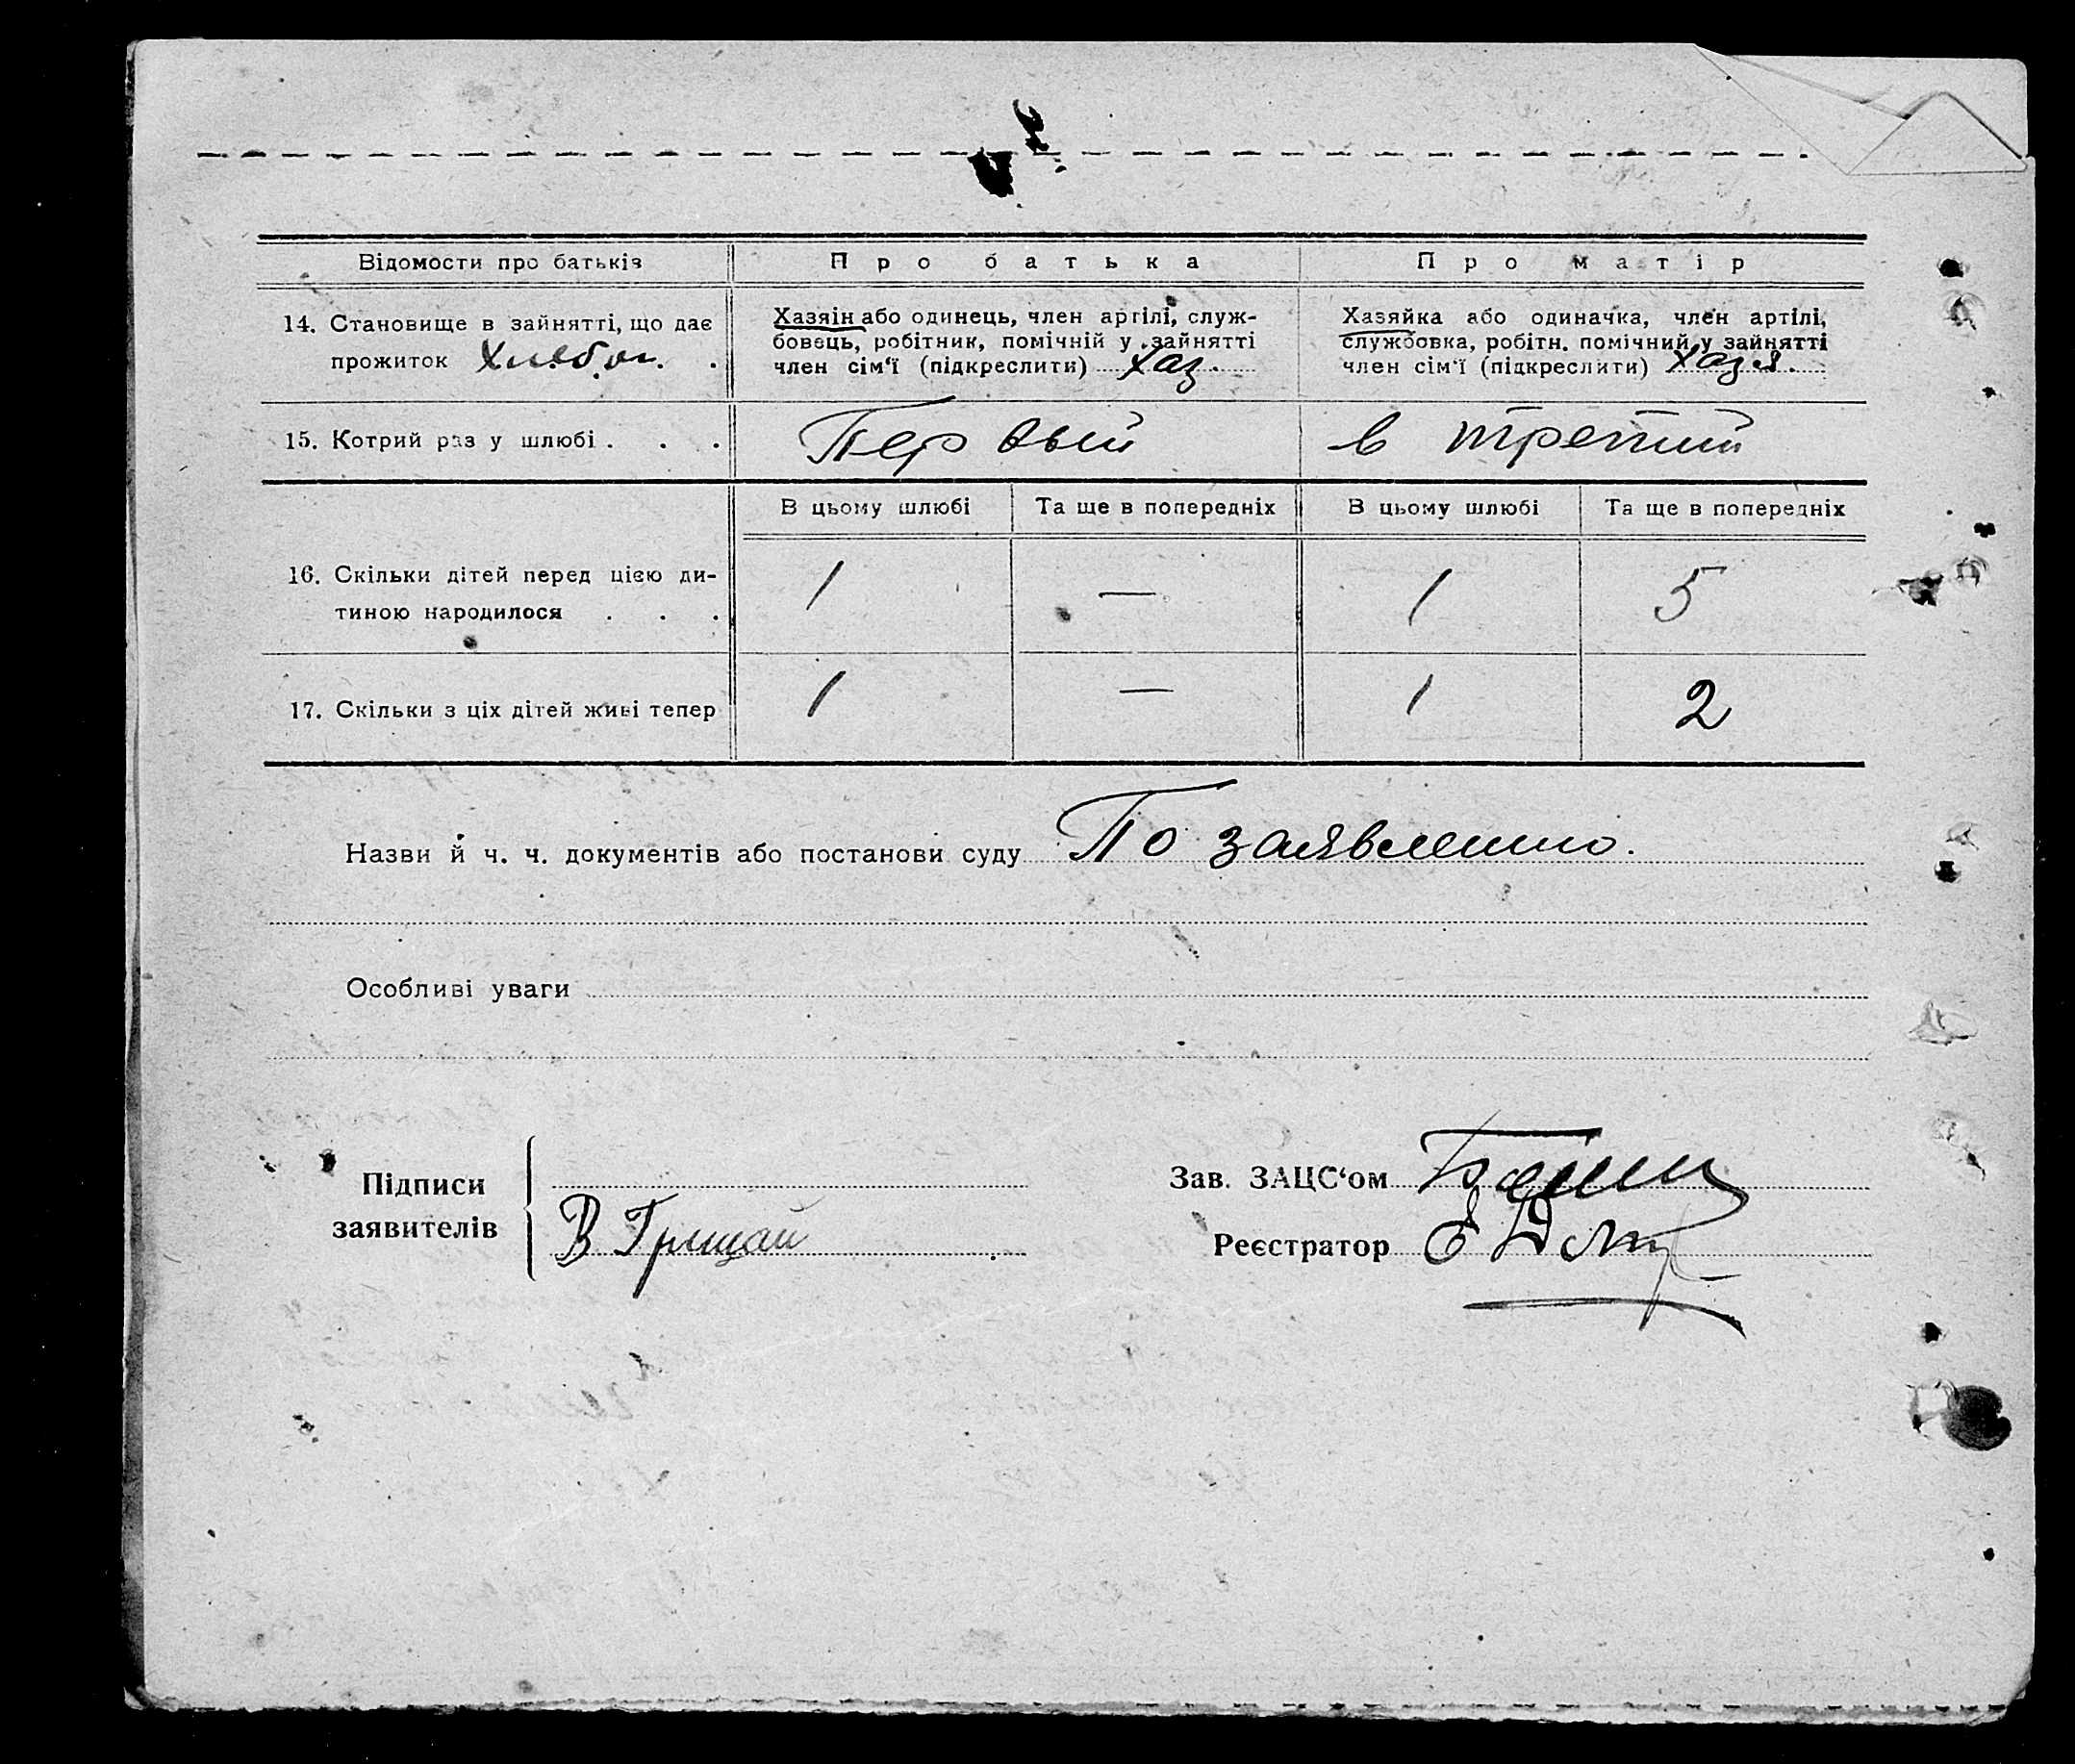 Відомости про батьків
П р о б а т ь к а
П р о м а т і р
14. Становище в зайнятті, що дає
прожиток Хлебоп. .
Хазяін або одинець, член артілі, служ-
бовець, робітник, помічній у зайнятті
член сім'ї (підкреслити) Хаз.
Хазяйка або одиначка, член артілі,
службовка, робітн. помічний у зайнятті
член сім'ї (підкреслити) Хазя.
15. Котрий раз у шлюбі . . .
Первый
в третий
В цьому шлюбі
Та ще в попередніх
В цьому шлюбі
Та ще в попередніх
16. Скільки дітей перед цією ди-
тиною народилося . . .
1
—
1
5
17. Скільки з ціх дітей живі тепер
1
—
1
2
Назви й ч. ч. документів або постанови суду По заявлению.
Особливі уваги
Підписи
заявителів
В Грицай
Зав. ЗАЦС'ом
Реєстратор